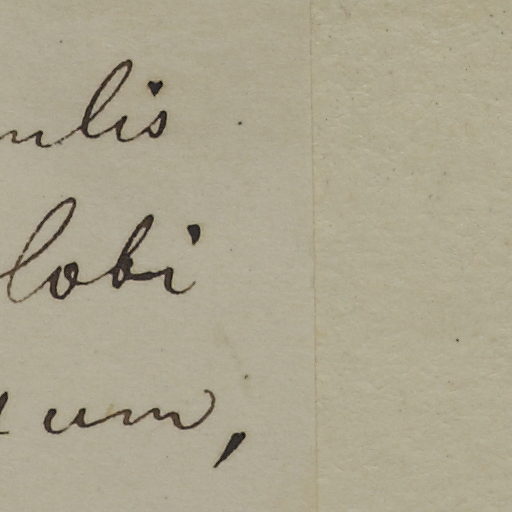 nlis
lobi
um,